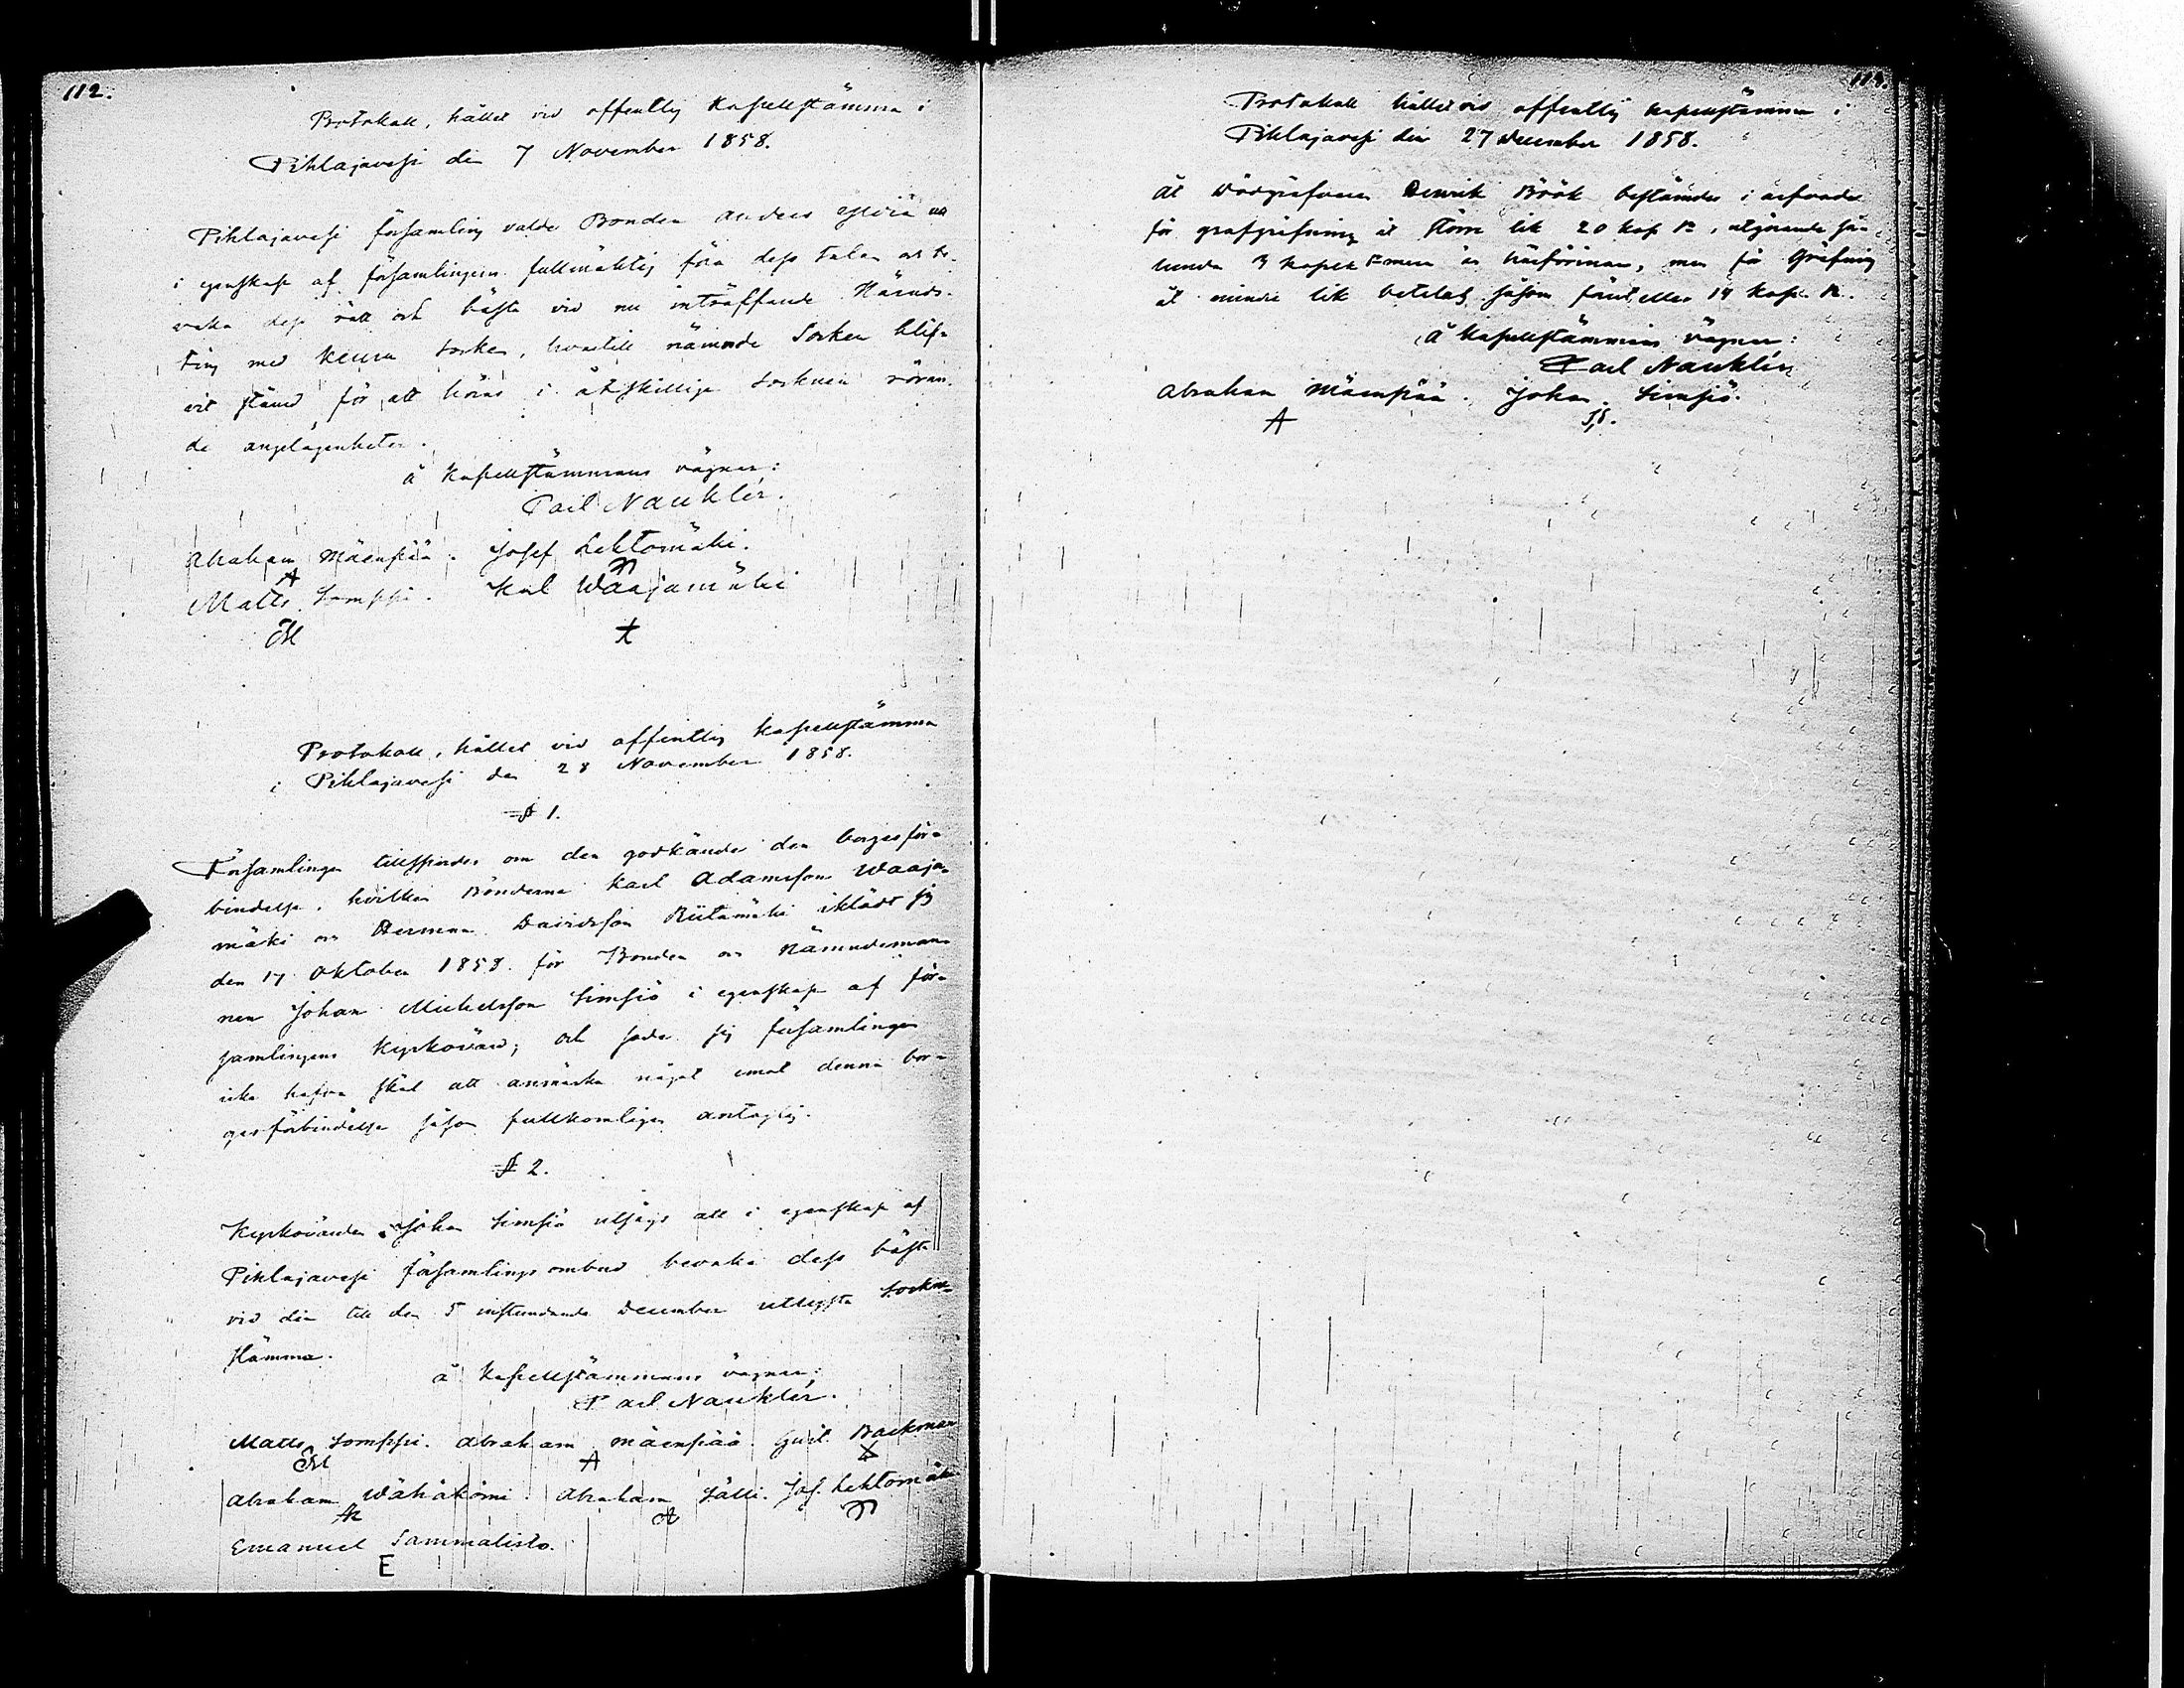 112.
Protokoll, hållet vid offentlig Kapellstämma i
Pihlajavesi den 7 November 1858.
Pihlajavesi församling valde Bonden Anders
i egenskap af församlingens fullmäktig föra dess talan och be-
vaka dess rätt och bästa vid nu inträffande Härads-
ting med Keuru Socken, hvartill nämnde Socken blif-
vit stämd för att höras i åtskilliga Socknen röran-
de angelägenheter.
å Kapellstämmans vägnar:
Carl Nauklér.
Abraham Mäenpää. Josef Lehtomäki.
A
Matts Somppi. Karl Waajamäki
M
Protokoll, hållet vid offentlig Kapellstämma
i Pihlajavesi den 28 November 1858.
§ 1.
Församlingen tillspordes om den godkände den borgesför-
bindelse, hvilken Bönderne Karl Adamsson Waaja-
mäki och Herman Davidsson Riitamäki iklädt sig
den 17 Oktober 1858 för Bonden och Nämndeman-
nen Johan Michelsson Simsiö i egenskap af för-
samlingens Kyrkovärd; och sade sig församlingen
icke hafva skäl att anmärka något emot denna bor-
gesförbindelse såsom fullkomligen antaglig.
§ 2.
Kyrkovärden Johan Simsiö utsågs att i egenskap af
Pihlajavesi församlings ombud bevaka dess bästa
vid den till den 5 instundande December utlysta Sockne-
stämma.
å Kapellstämmans vägnar;
Carl Nauklér.
Matts Somppi. Abraham Mäenpää. Gust. Backman
M A
Abraham Wähäkömi. Abraham Sälli. Jos. Lehtomäki
Emanuel Sammalisto.
E
113.
Protokoll hållet vid offentlig kapellstämma i
Pihlajavesi den 27 December 1858.
åt Dödgräfvaren Henrik Böök bestämdes i arfvode
för grafgräfning åt större lik 20 kop. Sr, utgörande så-
lunda 3 kopek mera än härförinnan, men för Gräfning
åt mindre lik betalas såsom förut eller 14 Kop. Sr.
å Kapellstämmans vägnar:
Carl Nauklér
Abraham Mäenpää. Johan Simsiö.
A J.S.